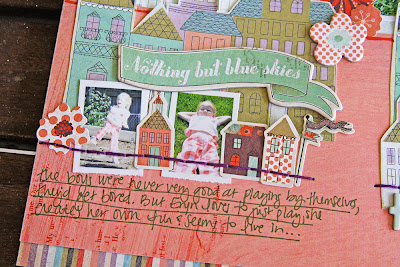 Nothing but blue skies
the boys were never very good at playing by themselves,
they'd get bored. But Evie loves to just play, she
creates her own fun & seems to live in...